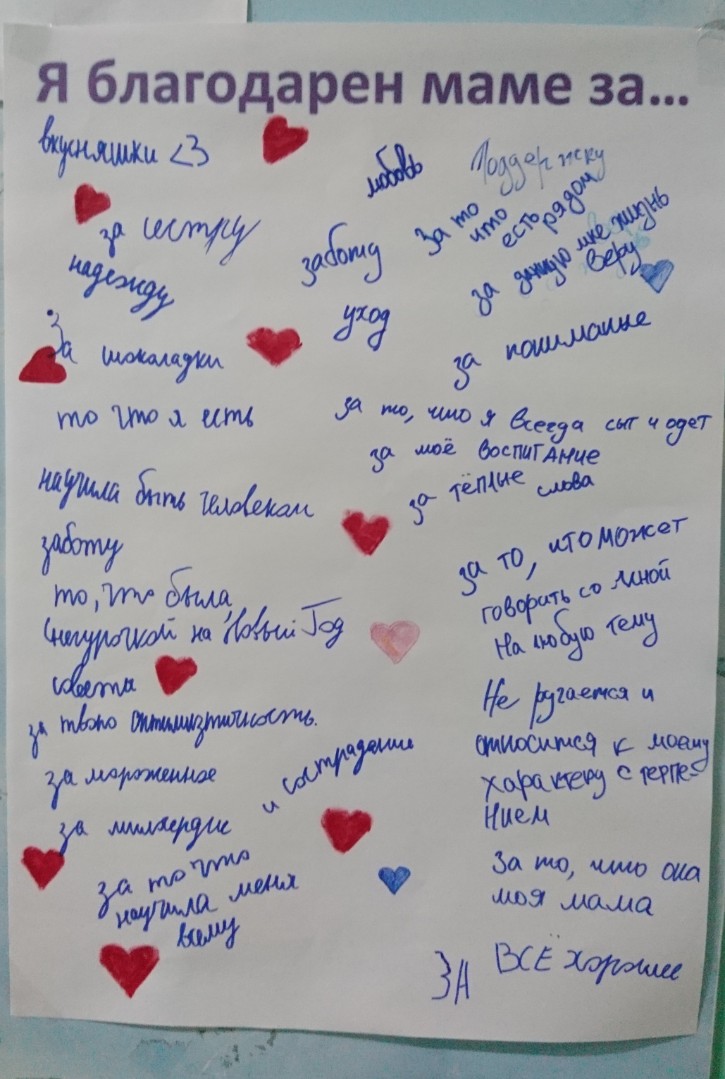 Я благодарен маме за...
вкусняшки <3
любовь
Поддержку
за сестру
заботу
За то
что
есть рядом
надежду
за данную мне жизнь
веру
уход
За шоколадки
за понимание
то что я есть
за то, что я всегда сыт и одет
за моё воспитание
за тёплые
слова
научила быть человеком
заботу
за то, что может
говорить со мной
На любую тему
то, что была
Снегурочкой на Новый Год
советы
Не ругается и
относится к моему
характеру с терпе-
нием
за твою оптимистичность.
за мороженное
и сострадание
за милосердие
За то, что она
моя мама
за то что
научила меня
всему
ЗА ВСЁ хорошее